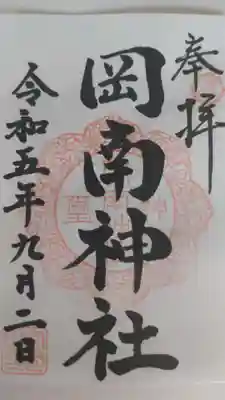 奉拝
岡南神社
令和五年九月二日